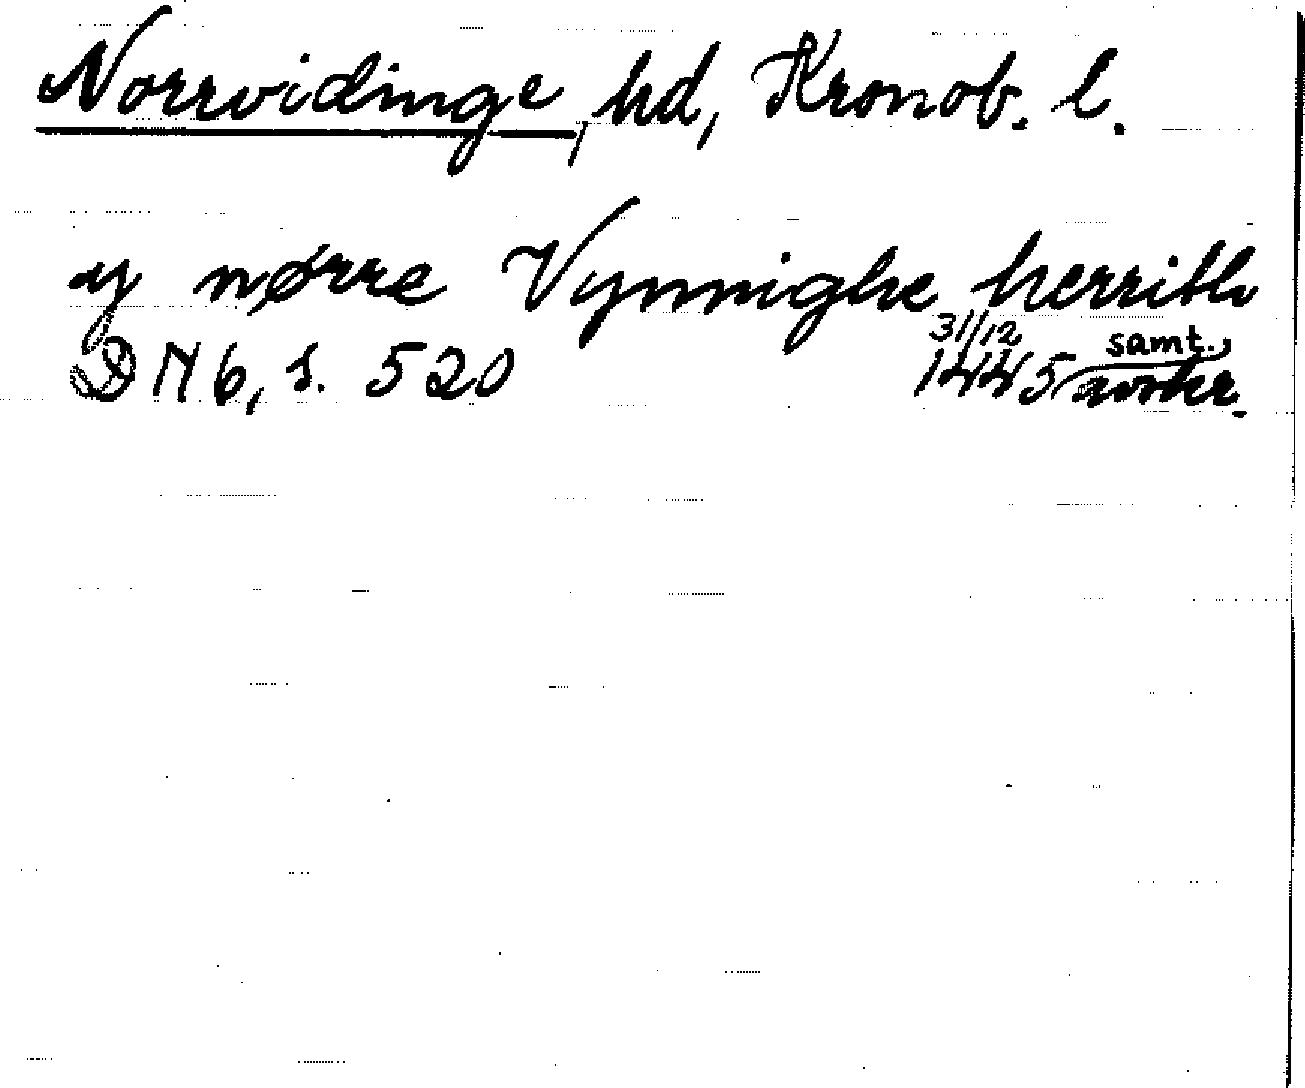 Norrvidinge, hd, Kronob. l.
y nørre Vynnighe herrith
DN 6, s. 520 31/12 1445 samt.